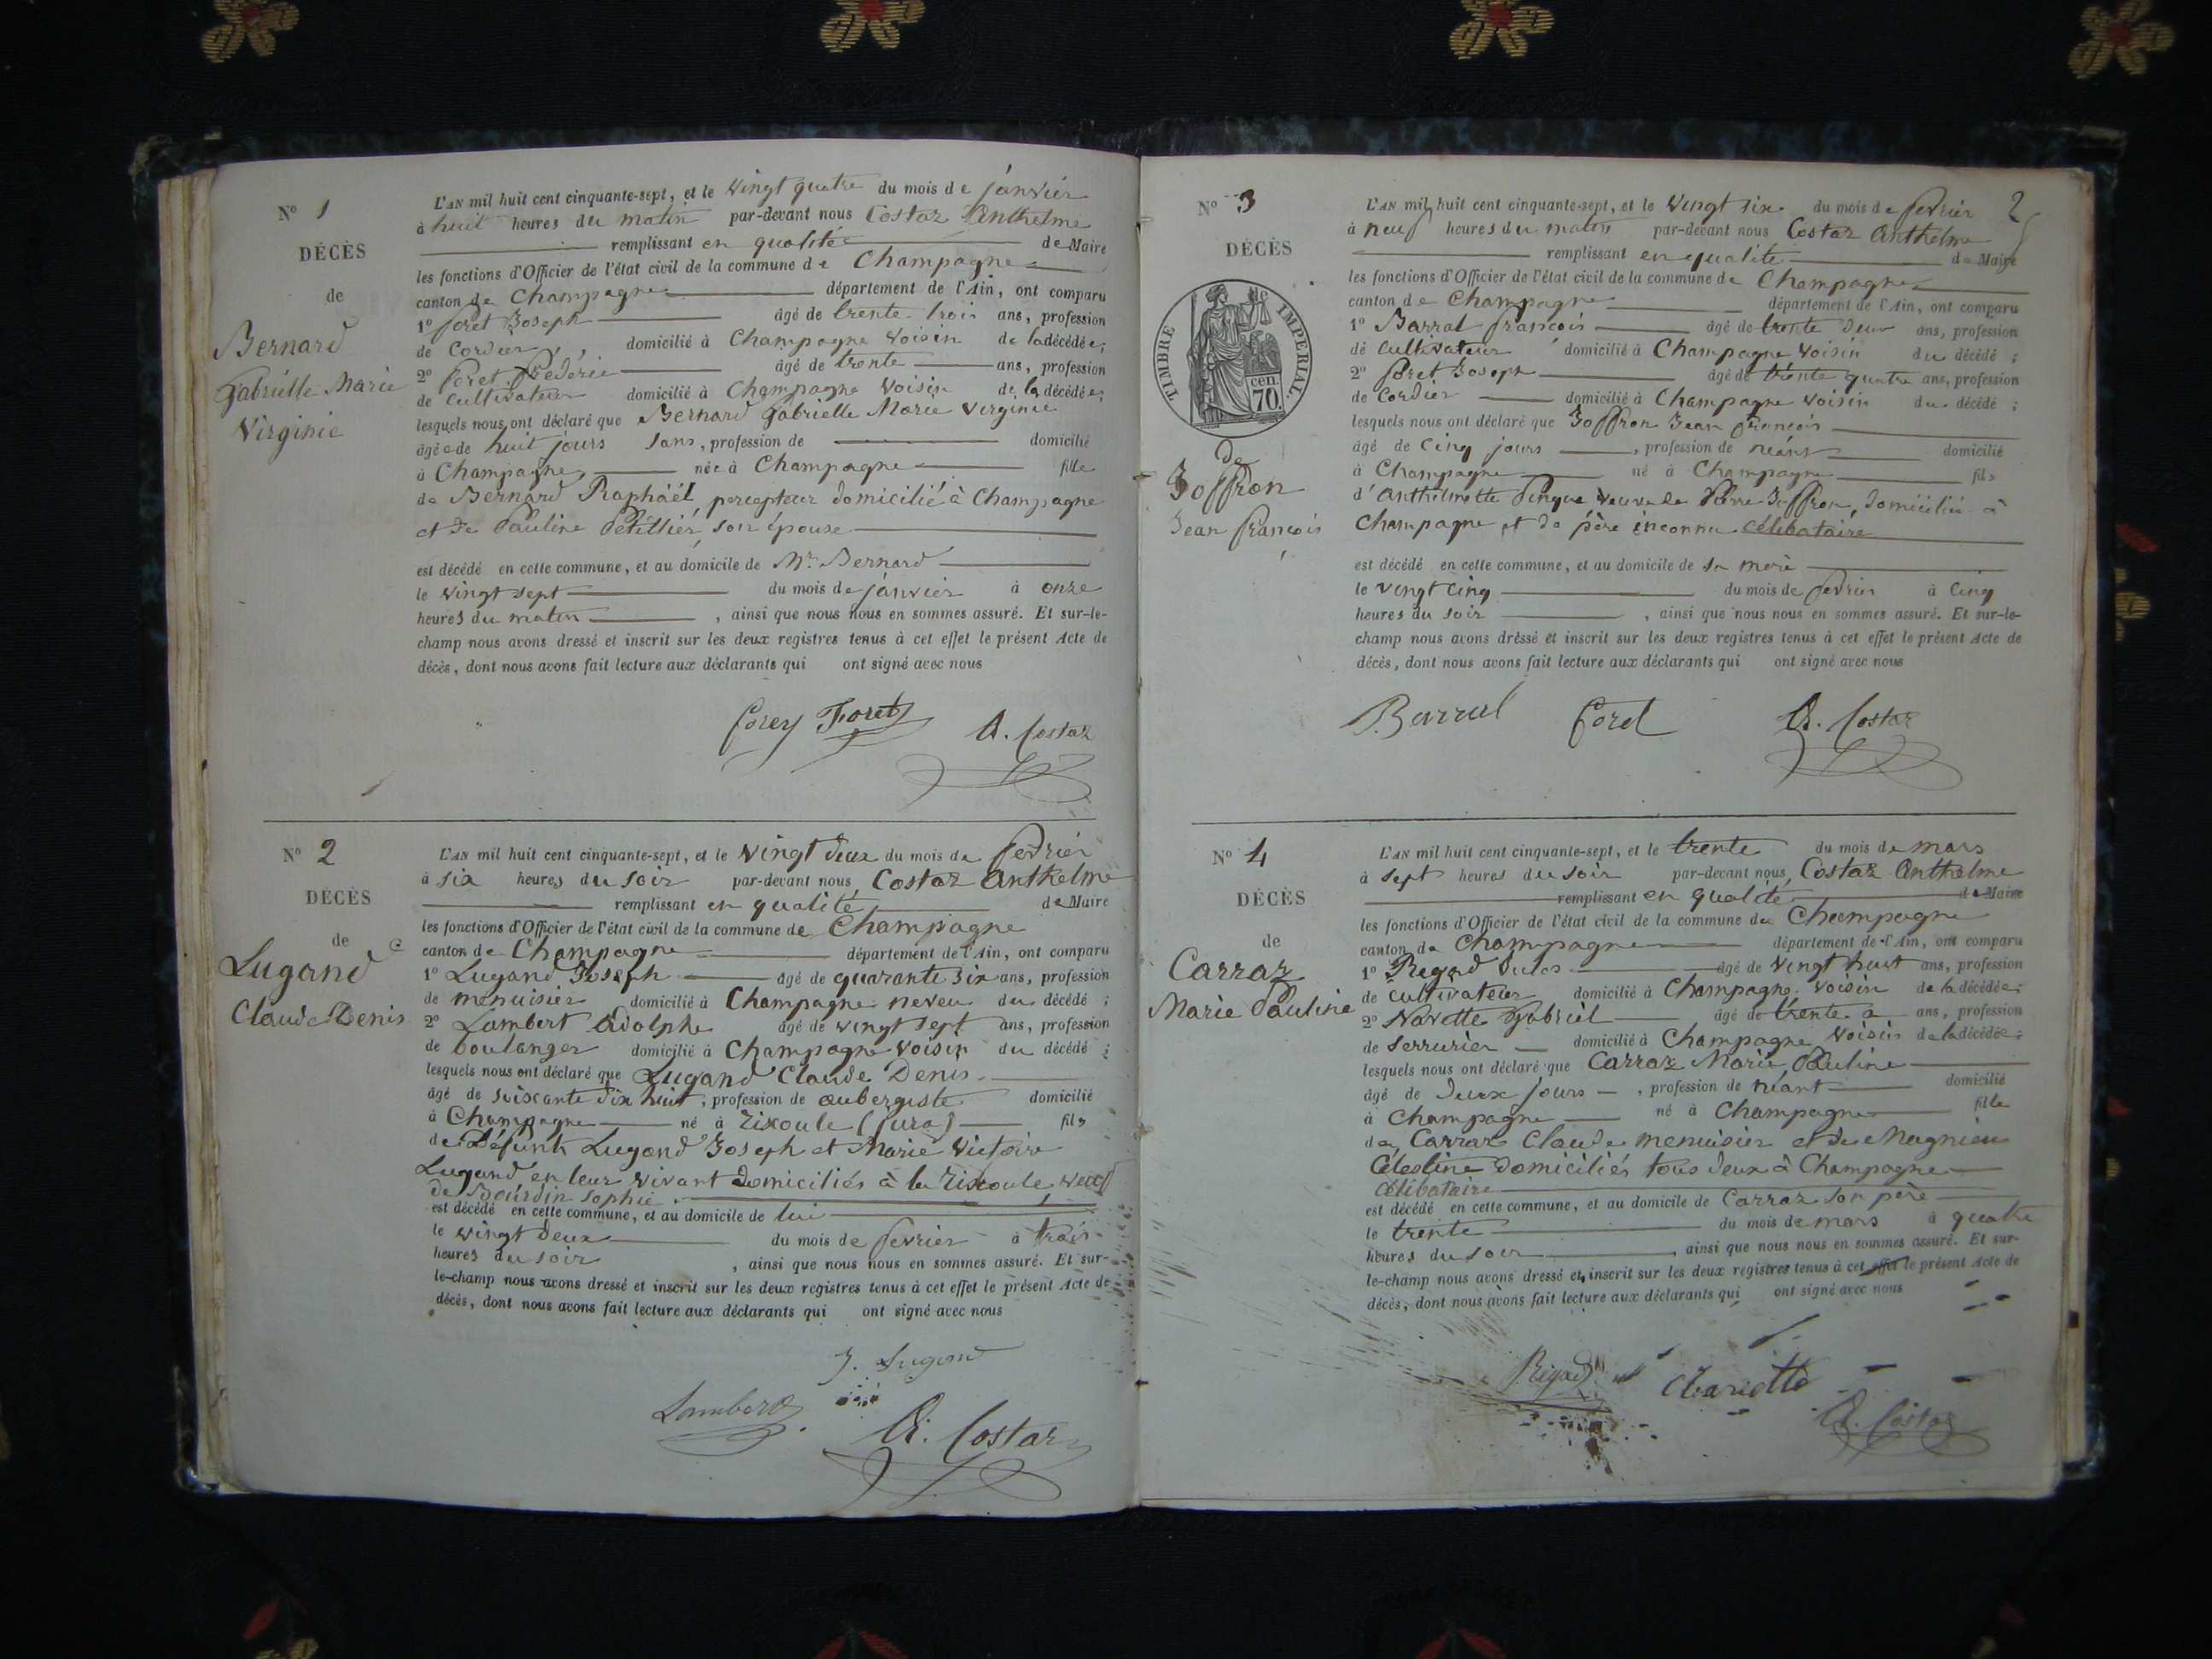 N° 1
DÉCÈS
de
Bernard
Gabrielle Marie
Virginie
L'AN mil huit cent cinquante-sept, et le vingt quatre du mois de janvier
à huit heures du matin par-devant nous Costaz Anthelme
remplissant en qualité de Maire
les fonctions d'Officier de l'état civil de la commune de Champagne
canton de Champagne département de l'Ain, ont comparu
1° foret Joseph âgé de trente trois ans, profession
de Cordier, domicilié à Champagne voisin de la décédée;
2° foret frédéric âgé de trente ans, profession
de cultivateur domicilié à Champagne voisin de la décédée;
lesquels nous ont déclaré que Bernard Gabrielle Marie Virginie
âgée de huit jours sans, profession de domicilié
à Champagne née à Champagne fille
de Bernard Raphaël percepteur domicilié à Champagne
et de Pauline son épouse
est décédé en cette commune, et au domicile de Mr Bernard
le vingt sept du mois de janvier à onze
heures du matin, ainsi que nous nous en sommes assuré. Et sur-le-
champ nous avons dressé et inscrit sur les deux registres tenus à cet effet le présent Acte de
décès, dont nous avons fait lecture aux déclarants qui ont signé avec nous
Foret A. Costaz
N° 2
DÉCÈS
de
Lugand
Claude Denis
L'AN mil huit cent cinquante-sept, et le vingt deux du mois de fevrier
à six heures du soir par-devant nous Costaz Anthelme
remplissant en qualité de Maire
les fonctions d'Officier de l'état civil de la commune de Champagne
canton de Champagne département de l'Ain, ont comparu
1° Lugand Joseph âgé de quarante six ans, profession
de menuisier domicilié à Champagne neveu du décédé;
2° Lambert Adolphe âgé de vingt sept ans, profession
de boulanger domicilié à Champagne voisin du décédé;
lesquels nous ont déclaré que Lugand Claude Denis
âgé de soixante dix huit, profession de aubergiste domicilié
à Champagne né à Rixoule (jura) fils
de Défunts Lugand Joseph et Marie Victoire
Lugand en leur vivant domiciliés à la Rixoule, veuf
de Bourdin Sophie
est décédé en cette commune, et au domicile de lui
le vingt deux du mois de fevrier à trois
heures du soir, ainsi que nous nous en sommes assuré. Et sur-
le-champ nous avons dressé et inscrit sur les deux registres tenus à cet effet le présent Acte de
décès, dont nous avons fait lecture aux déclarants qui ont signé avec nous
J. Lugand
Lambert A. Costaz
2
N° 3
DÉCÈS
TIMBRE IMPERIAL
70 cen.
de
Joffron
Jean françois
L'AN mil huit cent cinquante-sept, et le vingt six du mois de fevrier
à neuf heures du matin par-devant nous Costaz Anthelme
remplissant en qualité de Maire
les fonctions d'Officier de l'état civil de la commune de Champagne
canton de Champagne département de l'Ain, ont comparu
1° Barral françois âgé de trente deux ans, profession
de cultivateur domicilié à Champagne voisin du décédé;
2° foret Joseph âgé de trente quatre ans, profession
de Cordier domicilié à Champagne voisin du décédé;
lesquels nous ont déclaré que Joffron Jean françois
âgé de cinq jours, profession de néant domicilié
à Champagne né à Champagne fils
d'Anthelmette veuve de Pierre Joffron, domiciliée à
Champagne et de père inconnu célibataire
est décédé en cette commune, et au domicile de sa mère
le vingt cinq du mois de fevrier à cinq
heures du soir, ainsi que nous nous en sommes assuré. Et sur-le-
champ nous avons dressé et inscrit sur les deux registres tenus à cet effet le présent Acte de
décès, dont nous avons fait lecture aux déclarants qui ont signé avec nous
Barral foret A. Costaz
N° 4
DÉCÈS
de
Carraz
Marie Pauline
L'AN mil huit cent cinquante-sept, et le trente du mois de mars
à sept heures du soir par-devant nous Costaz Anthelme
remplissant en qualité de Maire
les fonctions d'Officier de l'état civil de la commune de Champagne
canton de Champagne département de l'Ain, ont comparu
1° Regad Jules âgé de vingt huit ans, profession
de cultivateur domicilié à Champagne voisin de la décédée;
2° Gabriel âgé de trente ans, profession
de serrurier domicilié à Champagne voisin de la décédée;
lesquels nous ont déclaré que Carraz Marie Pauline
âgé de deux jours, profession de néant domicilié
à Champagne né à Champagne fille
de Carraz Claude menuisier et de Magnien
Célestine domiciliés tous deux à Champagne
célibataire
est décédé en cette commune, et au domicile de Carraz son père
le trente du mois de mars à quatre
heures du soir, ainsi que nous nous en sommes assuré. Et sur-
le-champ nous avons dressé et inscrit sur les deux registres tenus à cet effet le présent Acte de
décès, dont nous avons fait lecture aux déclarants qui ont signé avec nous
Regad A. Costaz